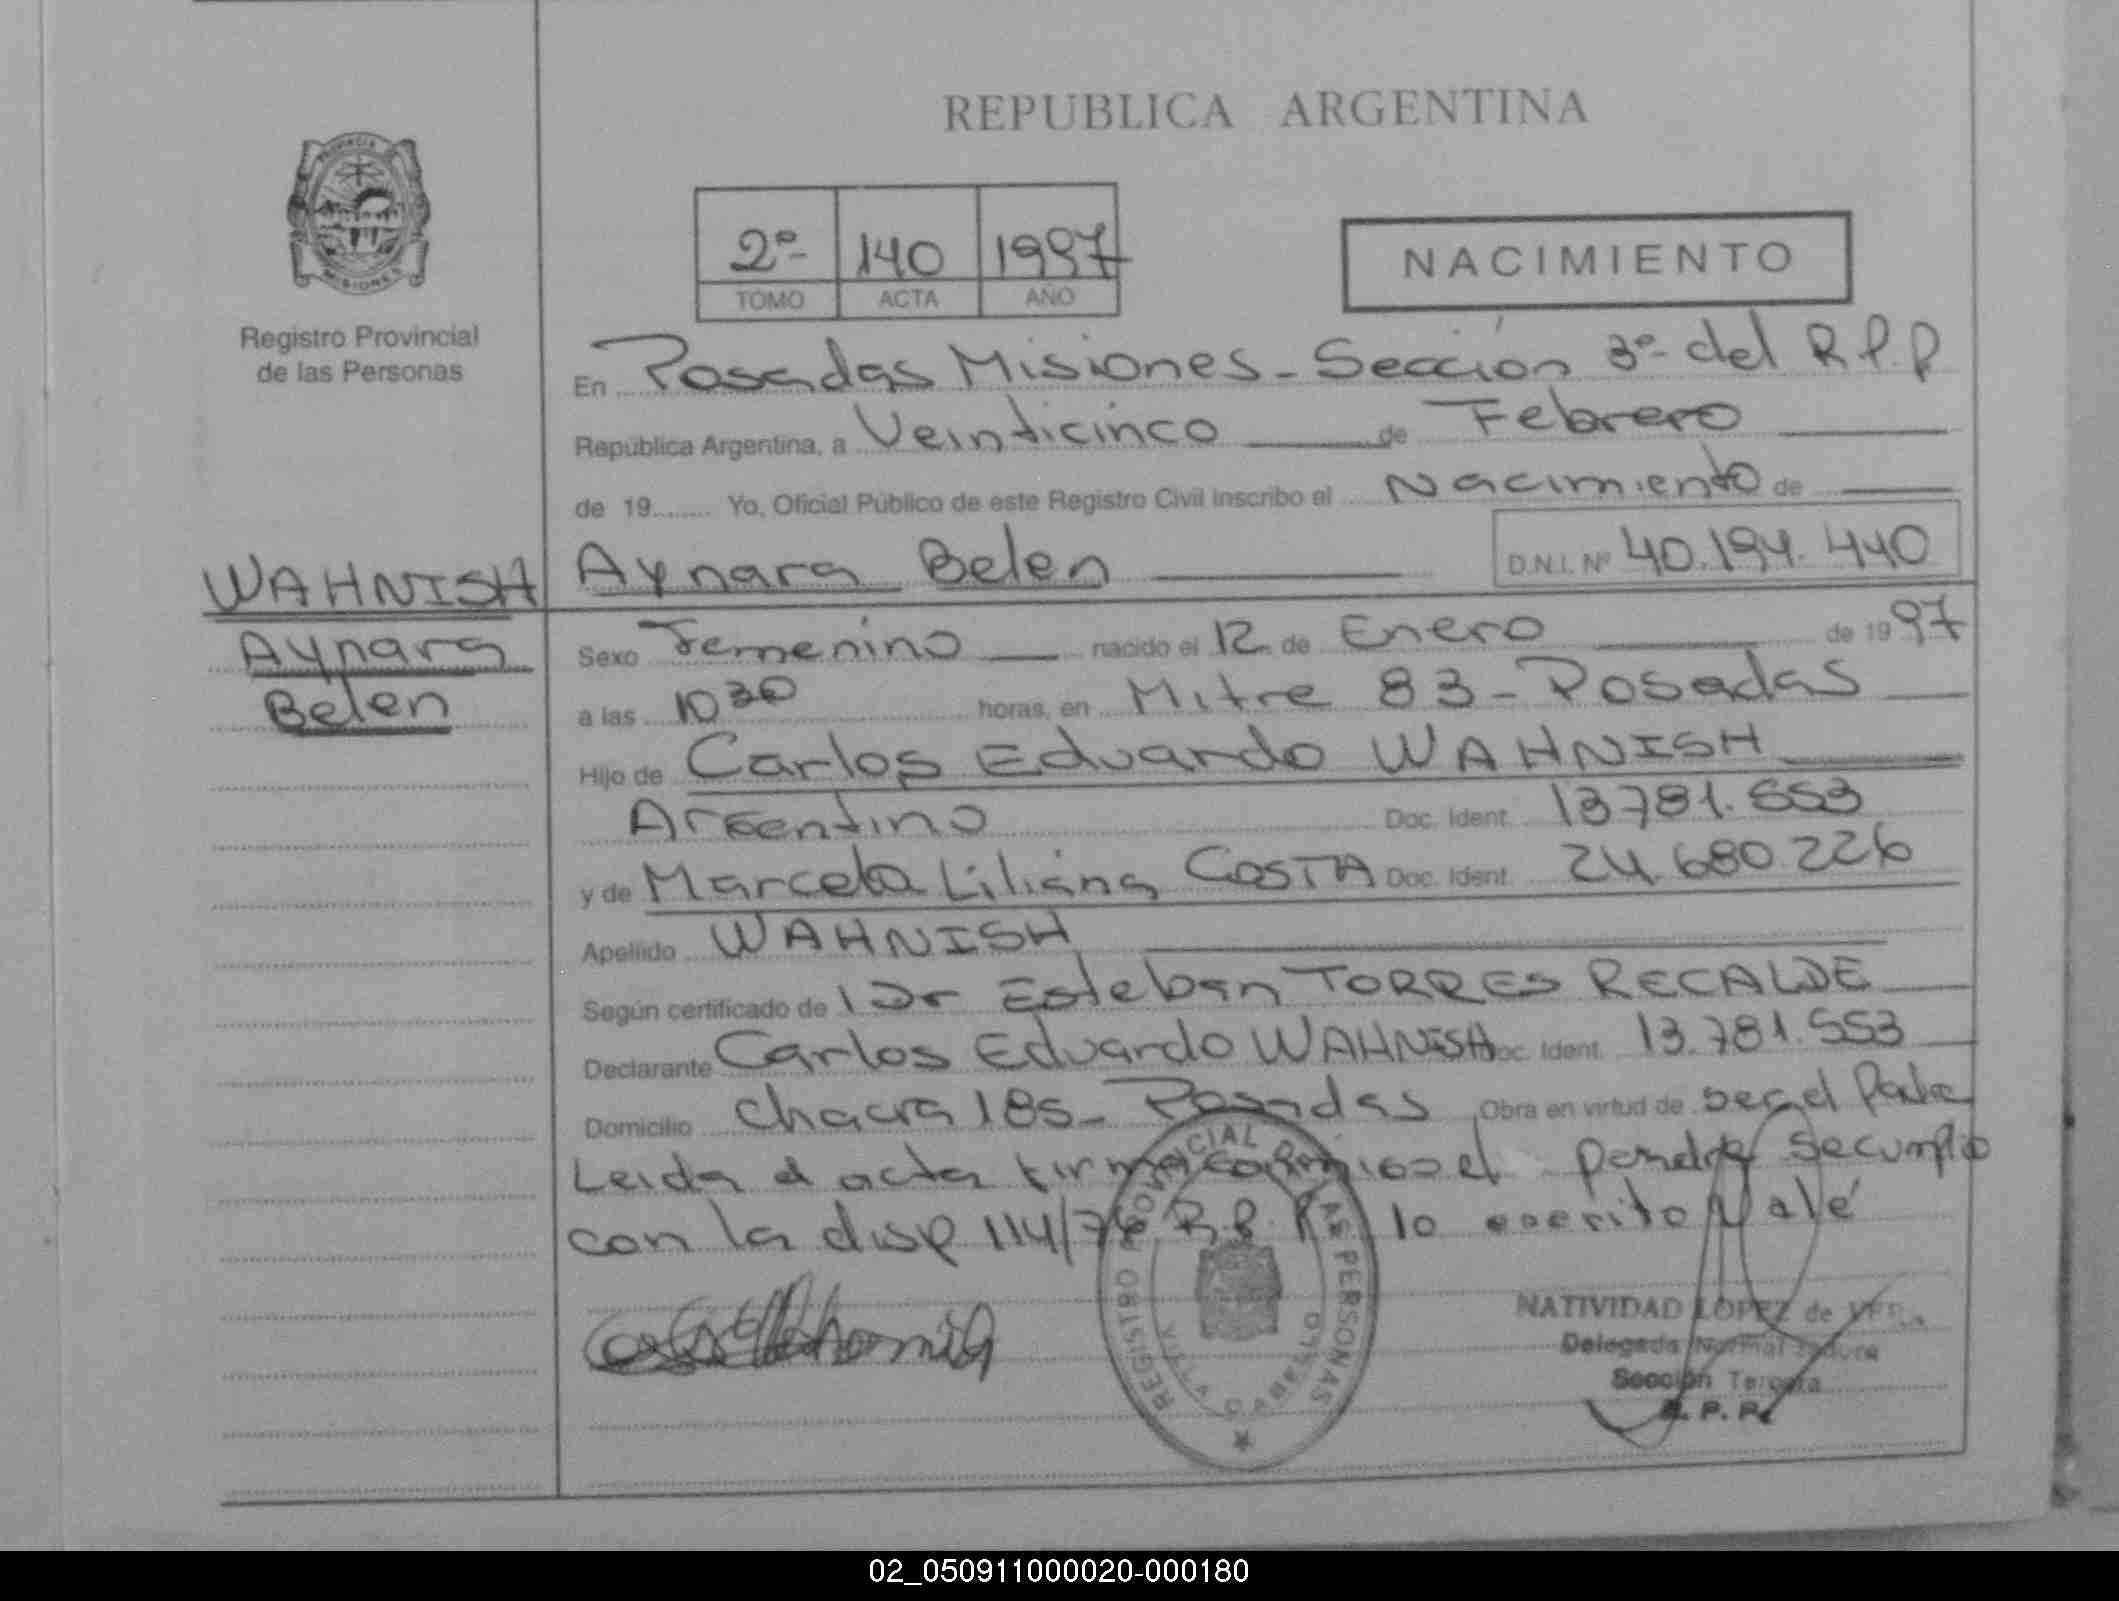 REPUBLICA ARGENTINA
PROVINCIA
MISIONES
Registro Provincial
de las Personas
2º- 140 1997
TOMO ACTA AÑO
NACIMIENTO
En Posadas Misiones - Sección 3º- del R.P.P
República Argentina, a Veinticinco de Febrero
de 19........ Yo, Oficial Público de este Registro Civil inscribo el Nacimiento de
WAHNISH Aynara Belen D.N.I. Nº 40.194.440
Aynara
Belen
Sexo Femenino nacido el 12 de Enero de 1997
a las 10 30 horas, en Mitre 83 - Posadas
Hijo de Carlos Eduardo WAHNISH
Argentino Doc. Ident. 13781.553
y de Marcela Liliana COSTA Doc. Ident. 24.680.226
Apellido WAHNISH
Según certificado de Dr Esteban TORRES RECALDE
Declarante Carlos Eduardo WAHNISH Doc. Ident. 13.781.553
Domicilio Chacra 185 - Posadas Obra en virtud de ser el Padre
Leida el acta firma conmigo el se cumplio
con la disp 114/76 R.P. lo escrito Vale
REGISTRO PROVINCIAL DE LAS PERSONAS
NATIVIDAD LOPEZ de
Delegada Normal
Sección Tercera
R. P. P.
02_050911000020-000180